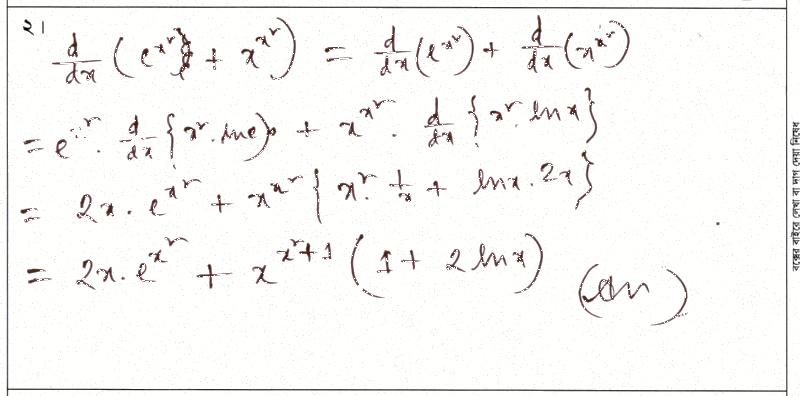 ২। d/dx (e^x² + x^x²) = d/dx (e^x²) + d/dx (x^x²)
= e^x² · d/dx {x² · ln e} + x^x² · d/dx {x² · ln x}
= 2x · e^x² + x^x² {x² · 1/x + ln x · 2x}
= 2x · e^x² + x^x²+1 (1 + 2 ln x) (Ans)
বক্সের বাইরে লেখা বা দাগ দেয়া নিষেধ